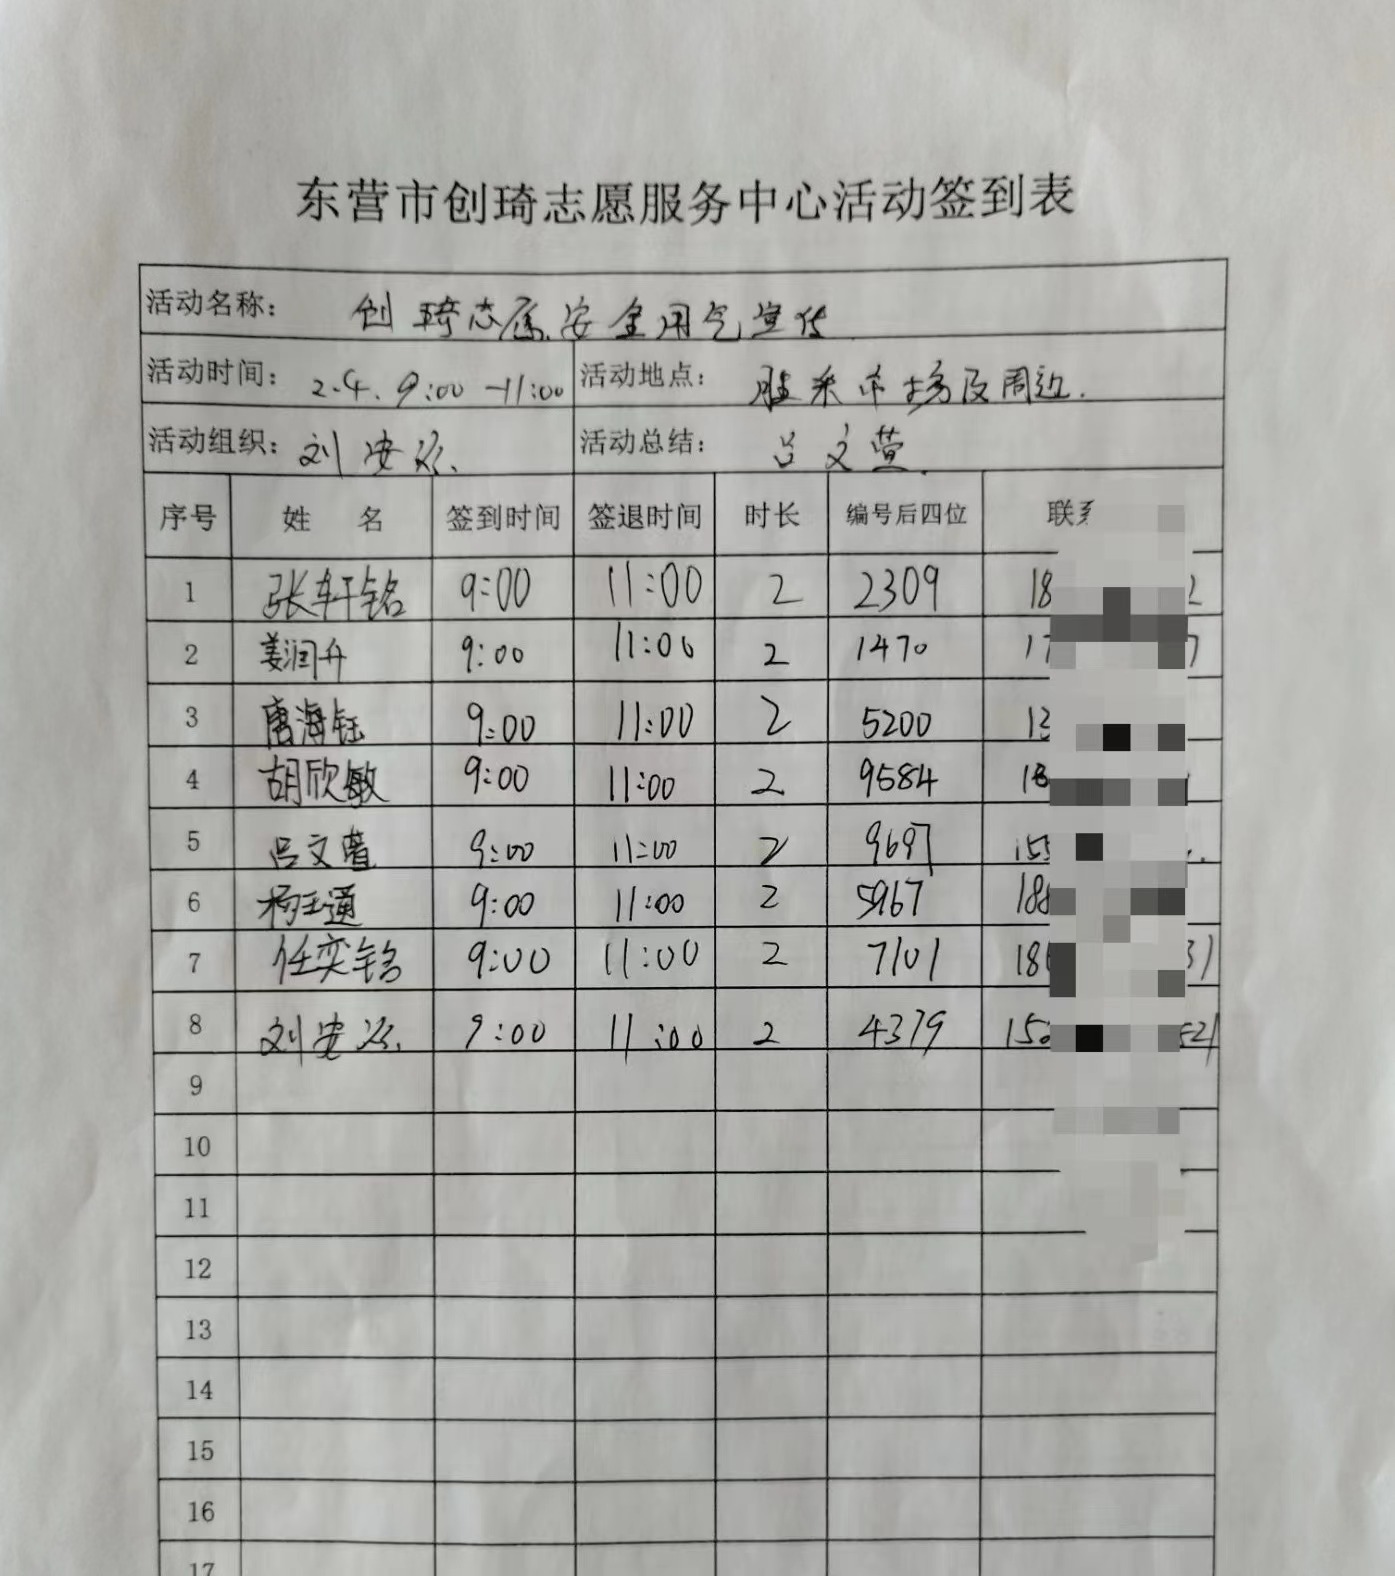 东营市创琦志愿服务中心活动签到表
活动名称： 创琦志愿安全用气宣传
活动时间： 2.4. 9:00-11:00 活动地点： 胜采市场及周边.
活动组织： 刘安 活动总结： 吕文萱.
序号 姓 名 签到时间 签退时间 时长 编号后四位 联系
1 张轩铭 9:00 11:00 2 2309 18 2
2 姜润升 9:00 11:00 2 1470 17 7
3 唐海钰 9:00 11:00 2 5200 13
4 胡欣敏 9:00 11:00 2 9584 18
5 吕文萱 9:00 11:00 2 9697 155
6 杨玉通 9:00 11:00 2 5967 188
7 任奕铭 9:00 11:00 2 7101 18 31
8 刘安 9:00 11:00 2 4379 15 521
9
10
11
12
13
14
15
16
17